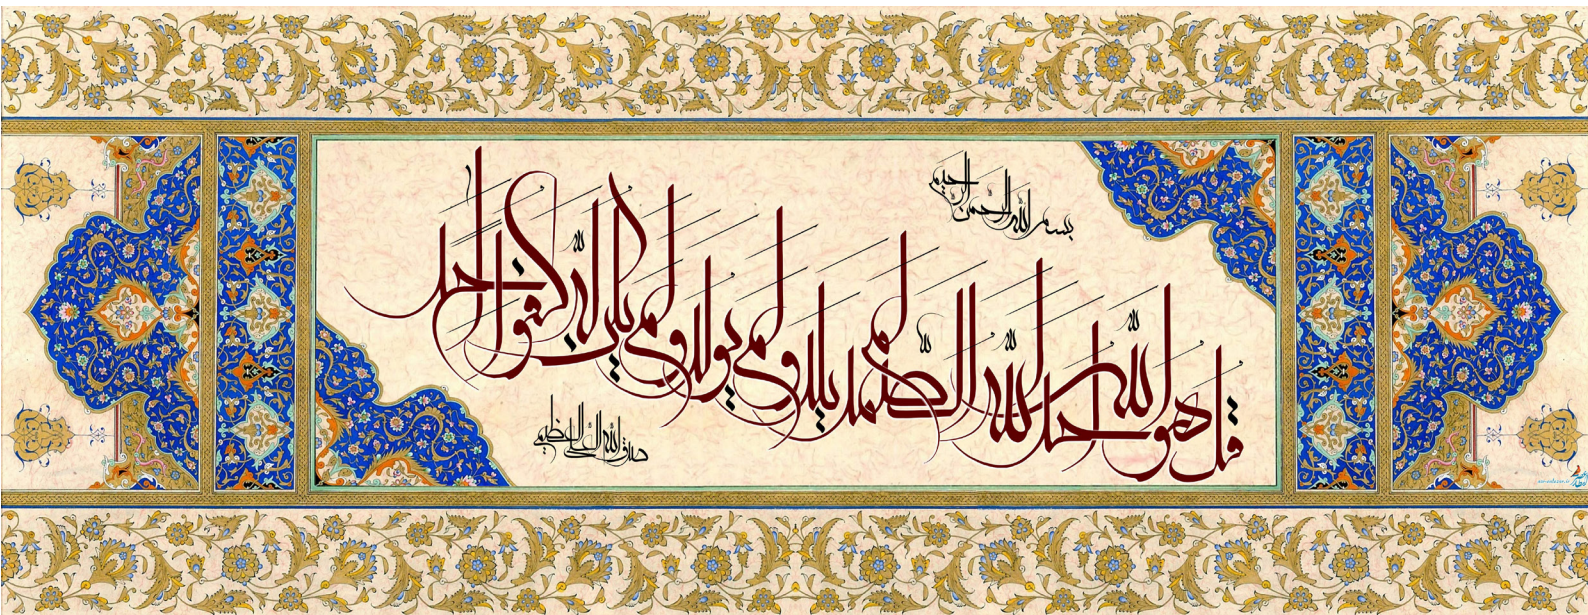 بسم الله الرحمن الرحيم
قل هو الله احد الله الصمد لم يلد ولم يولد ولم يكن له كفوا احد
صدق الله العلي العظيم